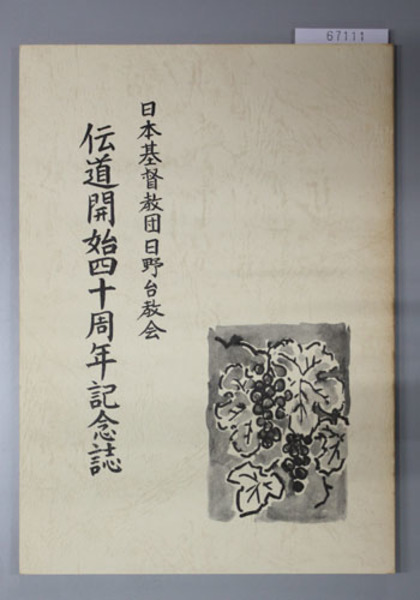 67111
日本基督教団日野台教会
伝道開始四十周年記念誌